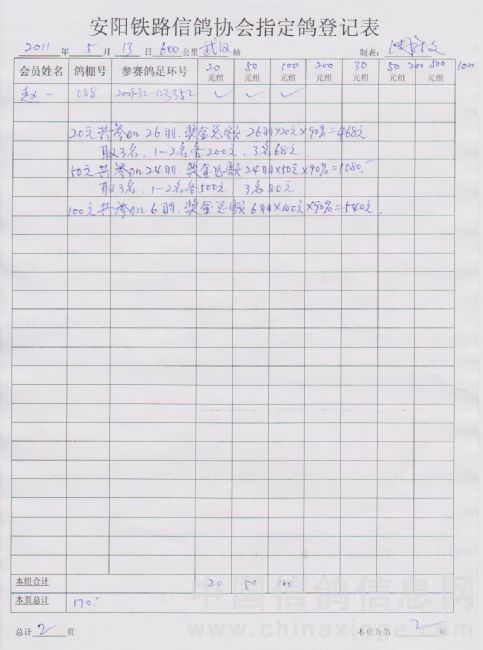 安阳铁路信鸽协会指定鸽登记表
2011 年 5 月 13 日 600 公里 武汉 站 制表:
会员姓名 鸽棚号 参赛鸽足环号 20元组 50元组 100元组 200元组 30元组 50元组 200元组 500 1000
赵一 088 ✓ ✓ ✓
20元共参加26羽,奖金总额26羽×20元×90%=468元
取3名,1-2名各200元,3名68元
50元共参加24羽,奖金总额24羽×50元×90%=1080.-
取3名,1-2名各500元,3名80元
100元共参加6羽,奖金总额6羽×100元×90%=540元.
本组合计 20 50 100
本页总计 170.-
总计 2 页 本页为第 2 页
中国信鸽信息网
www.chinaxinge.com